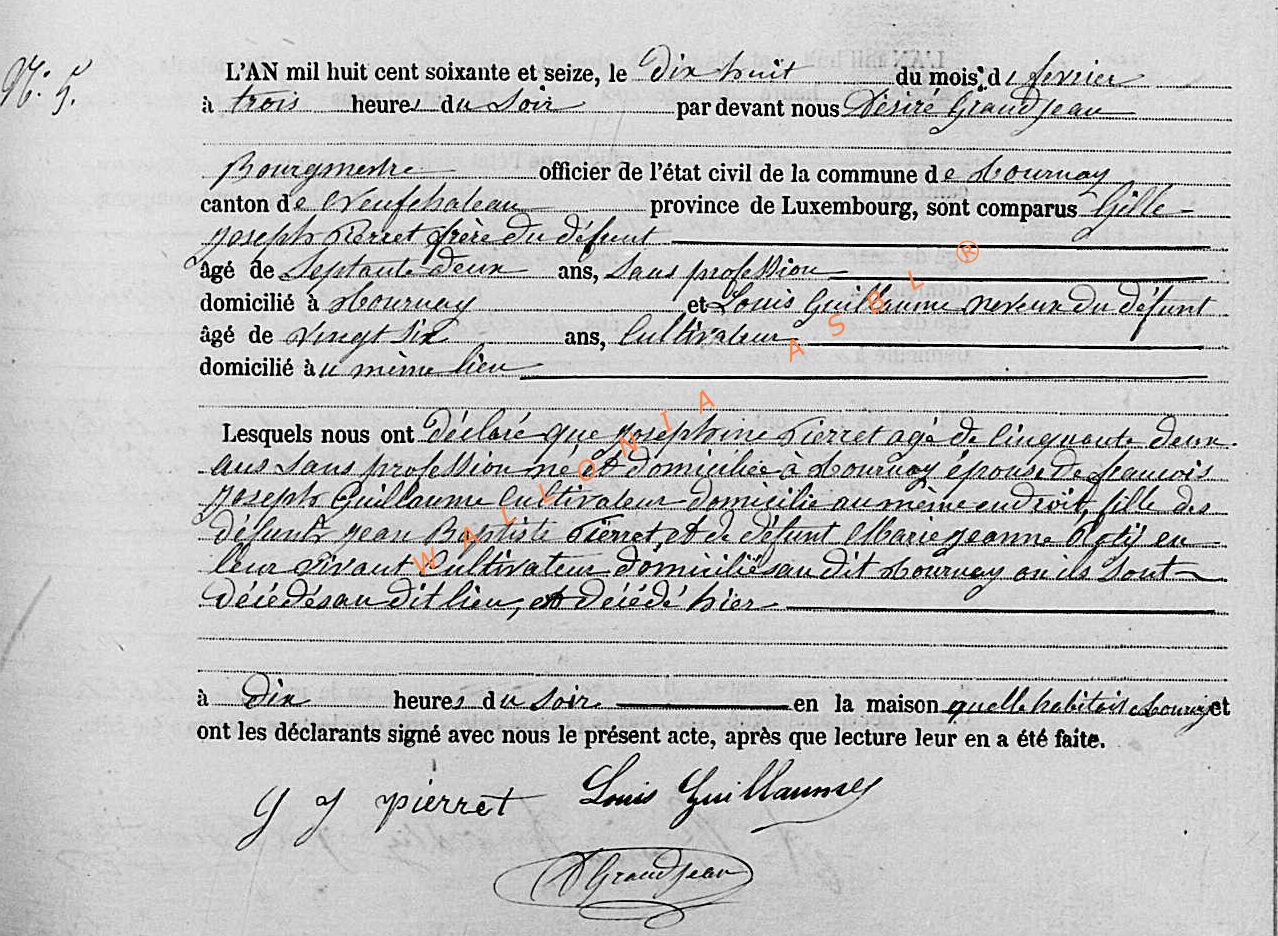 N: 5.
L'AN mil huit cent soixante et seize, le dix huit du mois de fevrier
à trois heures du soir par devant nous Désiré Grandjean
Bourgmestre officier de l'état civil de la commune de Tournay
canton de Neufchateau province de Luxembourg, sont comparus Gille
Joseph Pierret frère du défunt
âgé de Septante deux ans, sans profession
domicilié à Tournay et Louis Guillaume neveux du défunt
âgé de vingt six ans, Cultivateur
domicilié au même lieu
Lesquels nous ont déclaré que Josephine Pierret agé de Cinquante deux
ans sans profession né et domiciliée à Tournay épouse de francois
Joseph Guillaume Cultivateur domicilie au même endroit, fille des
défunt Jean Baptiste Pierret, et de défunt Marie Jeanne en
leur vivant Cultivateur domiciliés au dit Tournay ou ils sont
décédés au dit lieu, et décédé hier
à dix heures du soir en la maison quelle habitait Tournay et
ont les déclarants signé avec nous le présent acte, après que lecture leur en a été faite.
g J pierret Louis Guillaume
D Grandjean
WALLONIA ASBL ®